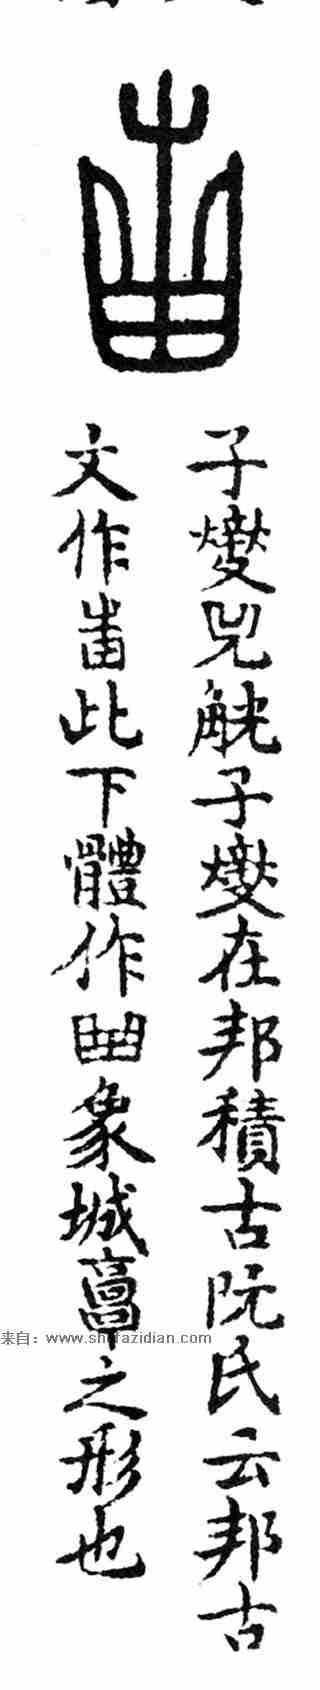 子燮兕觥子燮在邦積古阮氏云邦古
文作𤰫此下體作𠚖象城𩫖之形也
来自：www.shufazidian.com